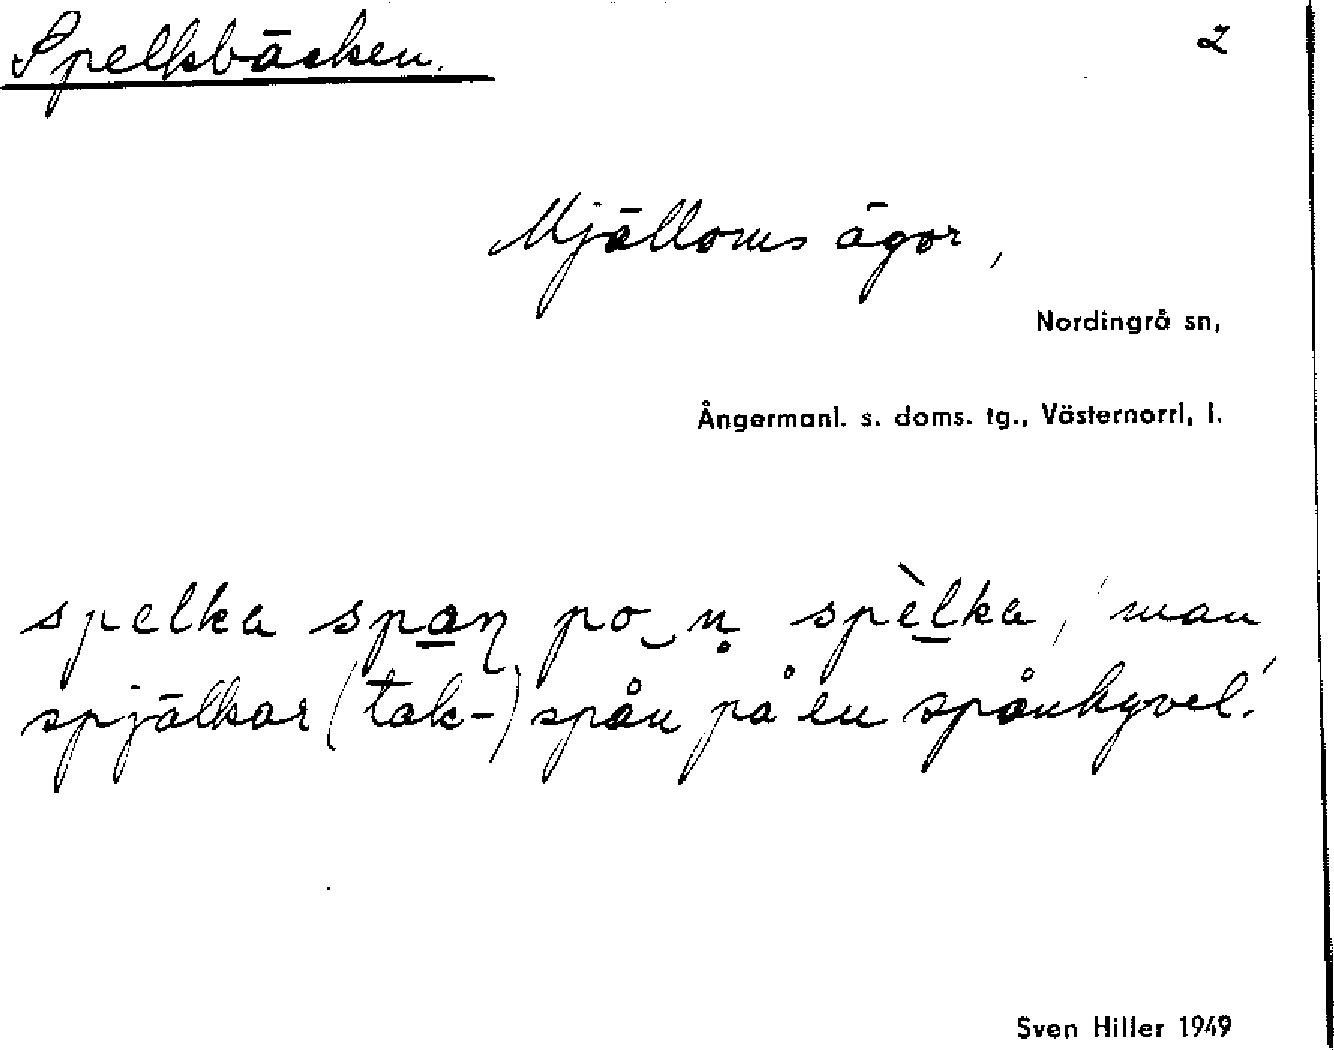 Spelkbäcken.
2
Mjälloms ägor,
Nordingrå sn,
Ångermanl. s. doms. tg., Västernorrl. l.
spelka spa̲ŋ po‿n̥ spè̲lka, 'man
spjälkar (tak-) spån på en spånhyvel.'
Sven Hiller 1949